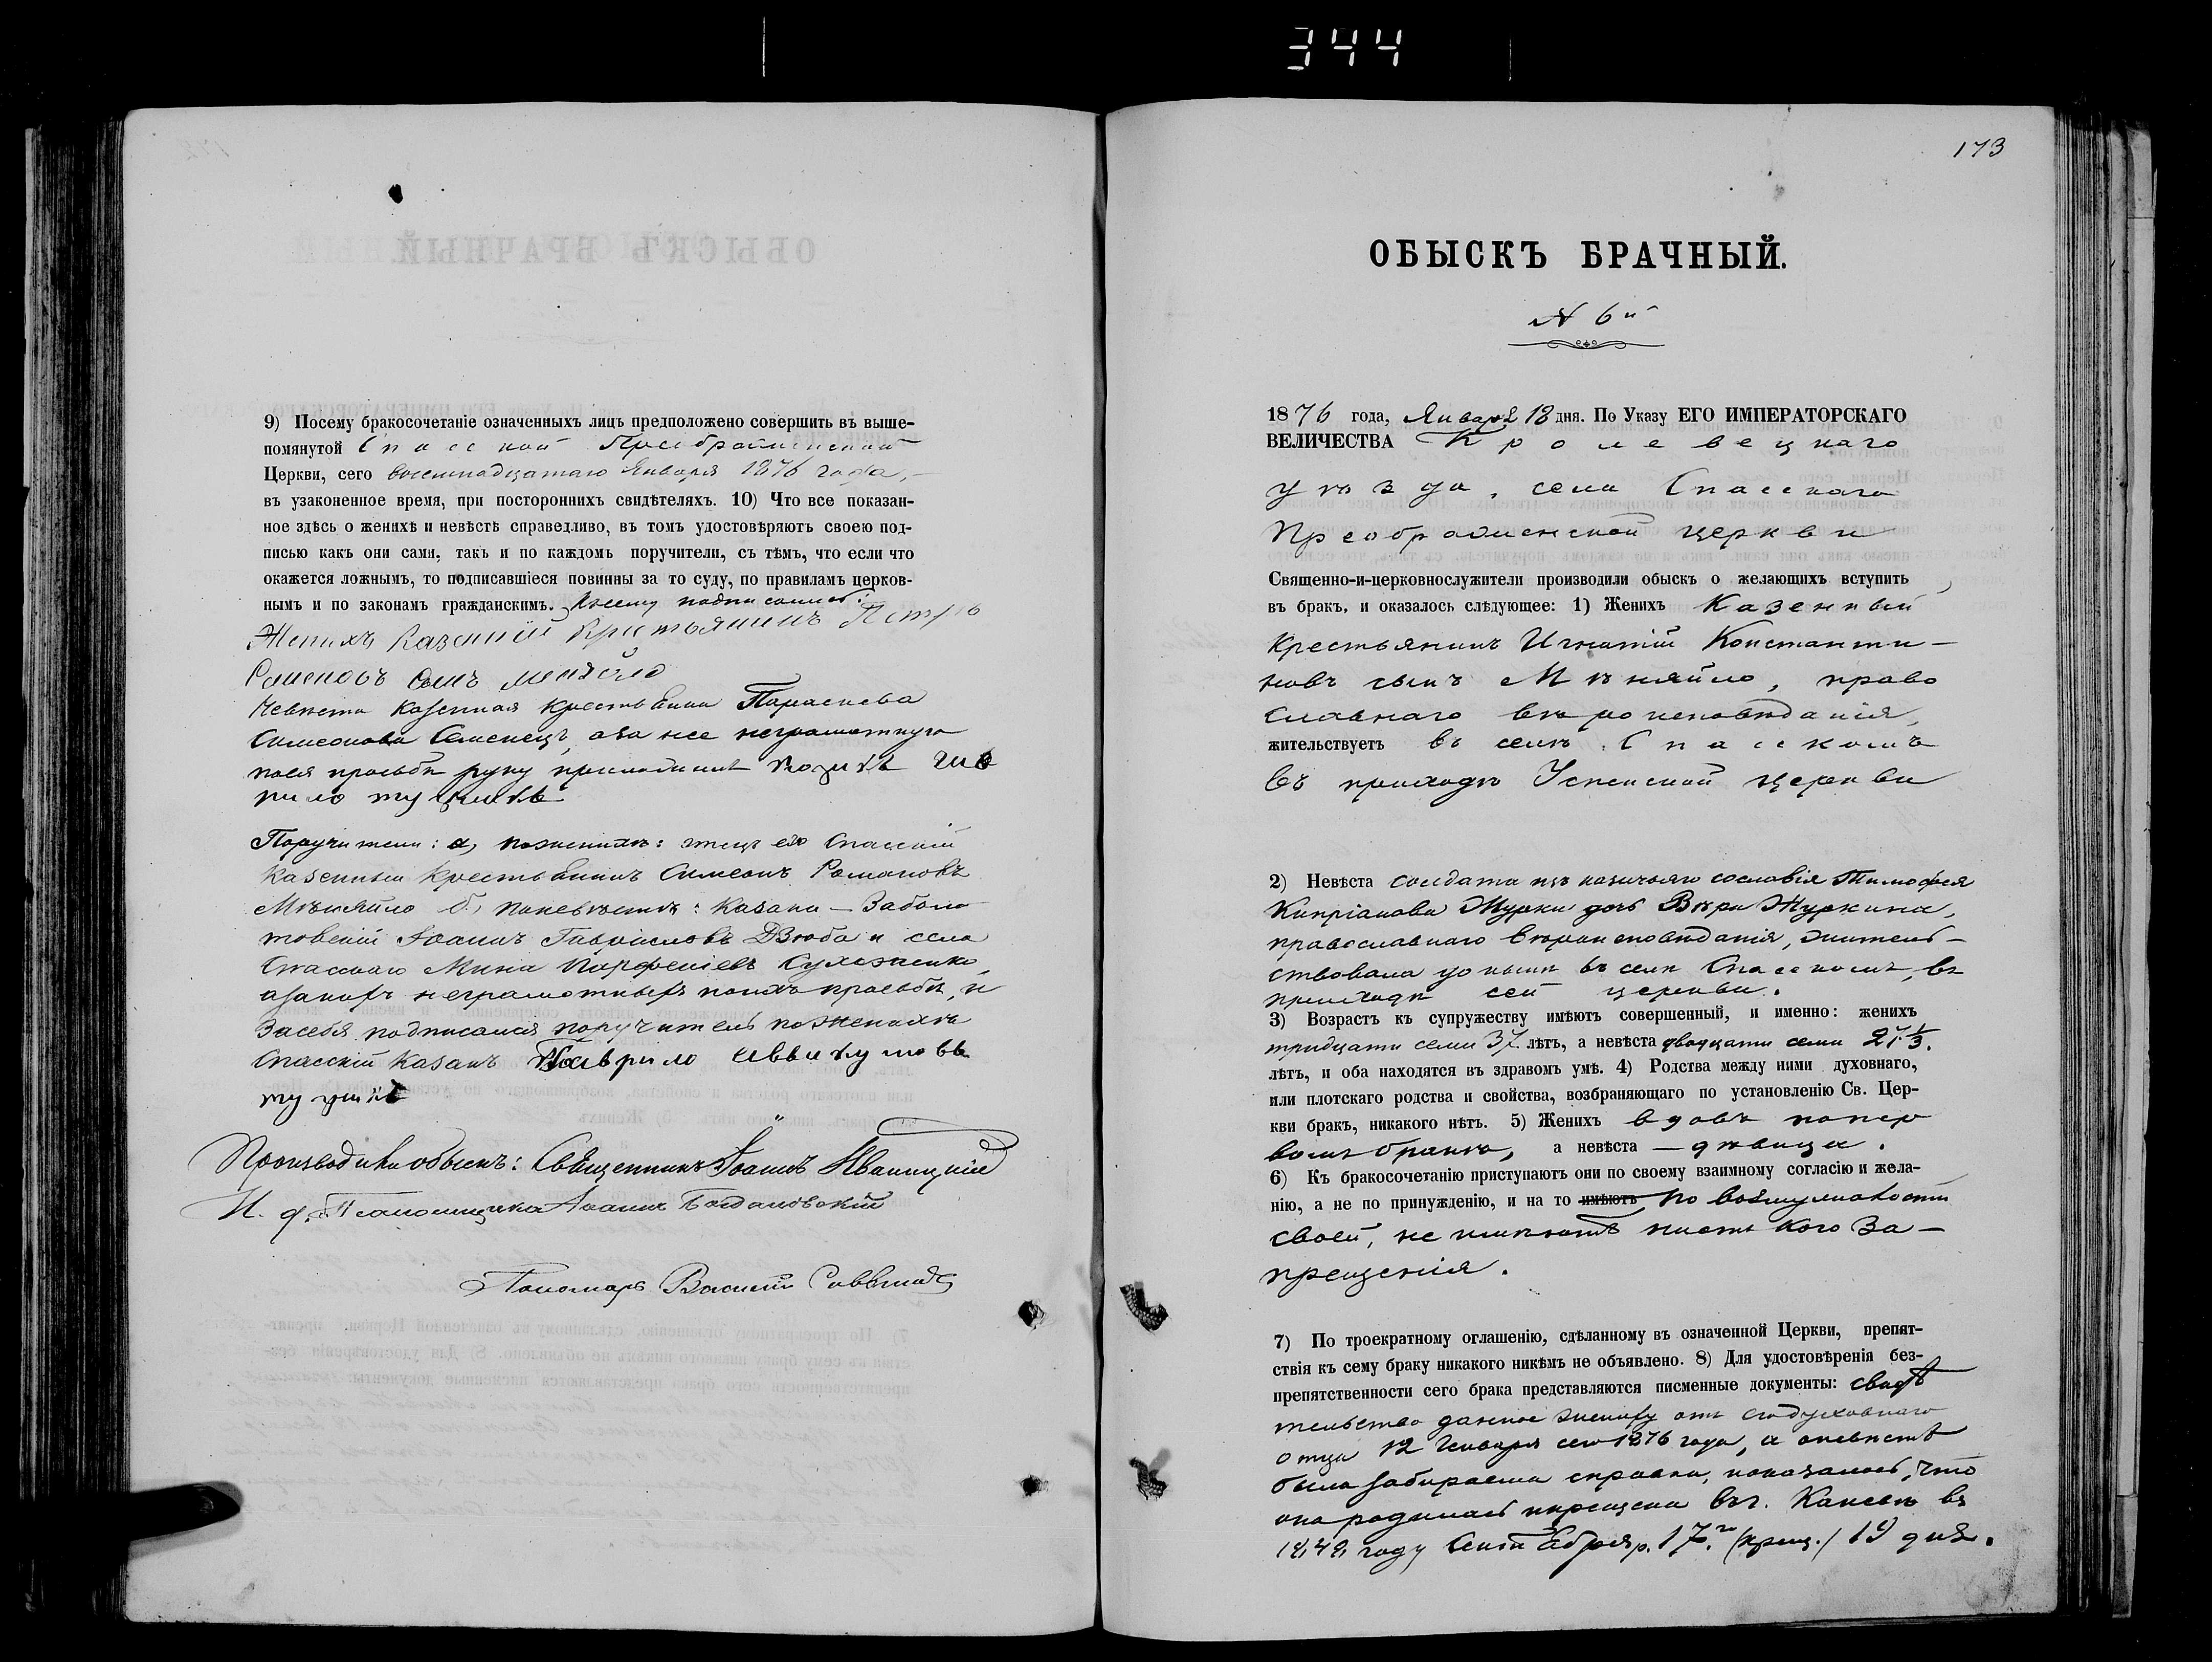 344
9) Посему бракосочетаніе означенныхъ лицъ предположено совершить въ выше-
помянутой Спасской Преображенской
Церкви, сего восемнадцатаго Января 1876 года,
въ узаконенное время, при постороннихъ свидѣтеляхъ. 10) Что все показан-
ное здѣсь о женихѣ и невѣстѣ справедливо, въ томъ удостовѣряютъ своею под-
писью какъ они сами, такъ и по каждомъ поручители, съ тѣмъ, что если что
окажется ложнымъ, то подписавшіеся повинны за то суду, по правиламъ церков-
нымъ и по законамъ гражданскимъ. Ксему подписались:
Женихъ Казенній Крестьянинъ Петро
сынъ
Невѣста казенная крестьянка Параскева
Симеонова Семенецъ, а за нее неграмотную
по ея просьбѣ руку приложилъ козакъ Гав
рило
Поручители: а, по женихѣ: отецъ его Спасскій
Казенный крестьянинъ Симеонъ Романовъ
Мѣняйло б, по невѣстѣ: Казаки – Заболо
товскій Іоаннъ Гавриловъ Дзюба и села
Спасскаго Мина Парфеніевъ
а за нихъ неграмотныхъ по ихъ просьбѣ, и
За себя подписался поручитель по женихѣ
Спасскій Казакъ Гаврило
Производили обыскъ: Священникъ Іоаннъ
И. д. Псаломщика Іоаннъ Богдановскій
Пономарь Василій
173
ОБЫСКЪ БРАЧНЫЙ.
№ 6й
1876 года, Января 18 дня. По Указу ЕГО ИМПЕРАТОРСКАГО
ВЕЛИЧЕСТВА Кролевецкаго
уѣзда, села Спасскаго
Преображенской церкви
Священно-и-церковнослужители производили обыскъ о желающихъ вступить
въ бракъ, и оказалось слѣдующее: 1) Женихъ Казенный
крестьянинъ Игнатій Константи-
новъ сынъ Мѣняйло, право
славнаго вѣроисповѣданія,
жительствуетъ въ селѣ Спасскомъ
въ приходѣ Успенской церкви
2) Невѣста солдата изъ козачьяго сословія Тимофея
Кипріанова Журки дочь Вѣра Журкина,
православнаго вѣроисповѣданія, житель-
ствовала до нынѣ въ селѣ Спасскомъ, въ
приходѣ сей церкви.
3) Возрастъ къ супружеству имѣютъ совершенный, и именно: женихъ
тридцати семи 37 лѣтъ, а невѣста двадцати семи 27 1/3.
лѣтъ, и оба находятся въ здравомъ умѣ. 4) Родства между ними духовнаго,
или плотскаго родства и свойства, возбраняющаго по установленію Св. Цер-
кви бракъ, никакого нѣтъ. 5) Женихъ вдовъ по пер
вомъ бракѣ, а невѣста – дѣвица.
6) Къ бракосочетанію приступаютъ они по своему взаимному согласію и жела-
нію, а не по принужденію, и на то имѣютъ по возмужалости
своей, не имѣютъ ни отъ кого за-
прещенія.
7) По троекратному оглашенію, сдѣланному въ означенной Церкви, препят-
ствія къ сему браку никакого никѣмъ не объявлено. 8) Для удостовѣренія без-
препятственности сего брака представляются писменные документы: свидѣ
тельство данное жениху отъ его духовнаго
отца 12 Января сего 1876 года, а о невѣстѣ
была забираема справка, показалось, что
она родилась и крещена въ г. Каневѣ въ
1848 году Сентября р. 17го (крещ.) 19 дня.